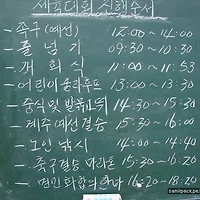 체육대회 시행순서
- 족구(예선) 12:00 ~ 14:00
- 줄넘기 09:30 ~ 10:30
- 개회식 11:00 ~ 11:53
- 어린이 훌라후프 13:00 ~ 13:30
- 14:30 ~ 15:30
- 계주예선결승 15:30 ~ 16:00
- 노인낚시 14:40 ~ 15:00
- 족구결승, 마라톤 15:30 ~ 16:20
- 면민화합의 한마당 16:20 ~ 18:20
samilpack.pe